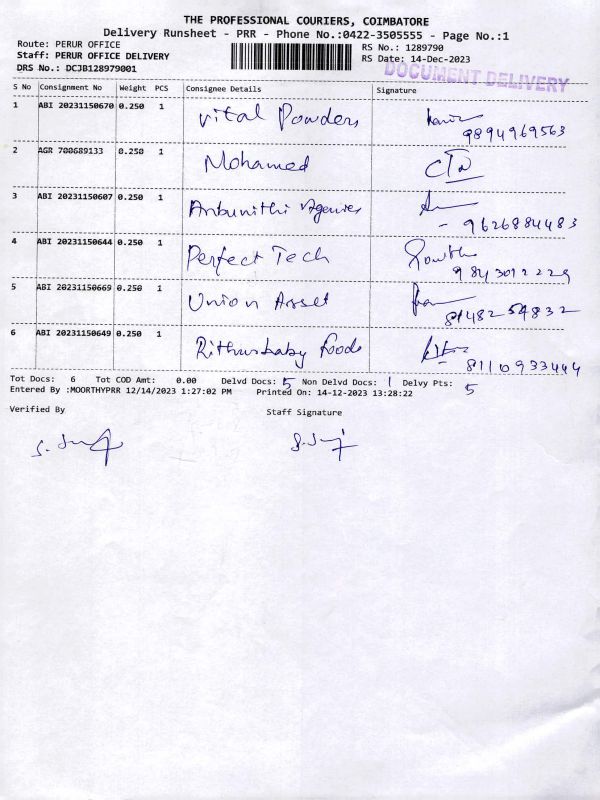 THE PROFESSIONAL COURIERS, COIMBATORE
Delivery Runsheet - PRR - Phone No.:0422-3505555 - Page No.:1
Route: PERUR OFFICE
RS No.: 1289790
Staff: PERUR OFFICE DELIVERY
RS Date: 14-Dec-2023
DRS No.: DCJB128979001
DOCUMENT DELIVERY
S No Consignment No Weight PCS Consignee Details Signature
1 ABI 20231150670 0.250 1 Vital Powders
9894969563
2 AGR 700689133 0.250 1 Mohamed
3 ABI 20231150607 0.250 1 Anbunithi Agencies
- 9626884483
4 ABI 20231150644 0.250 1 Perfect Tech
9843012229
5 ABI 20231150669 0.250 1 Union Asset
8148254832
6 ABI 20231150649 0.250 1 Rithusbaby Foods
8110933444
Tot Docs: 6 Tot COD Amt: 0.00 Delvd Docs: 5 Non Delvd Docs: 1 Delvy Pts: 5
Entered By :MOORTHYPRR 12/14/2023 1:27:02 PM Printed On: 14-12-2023 13:28:22
Verified By Staff Signature